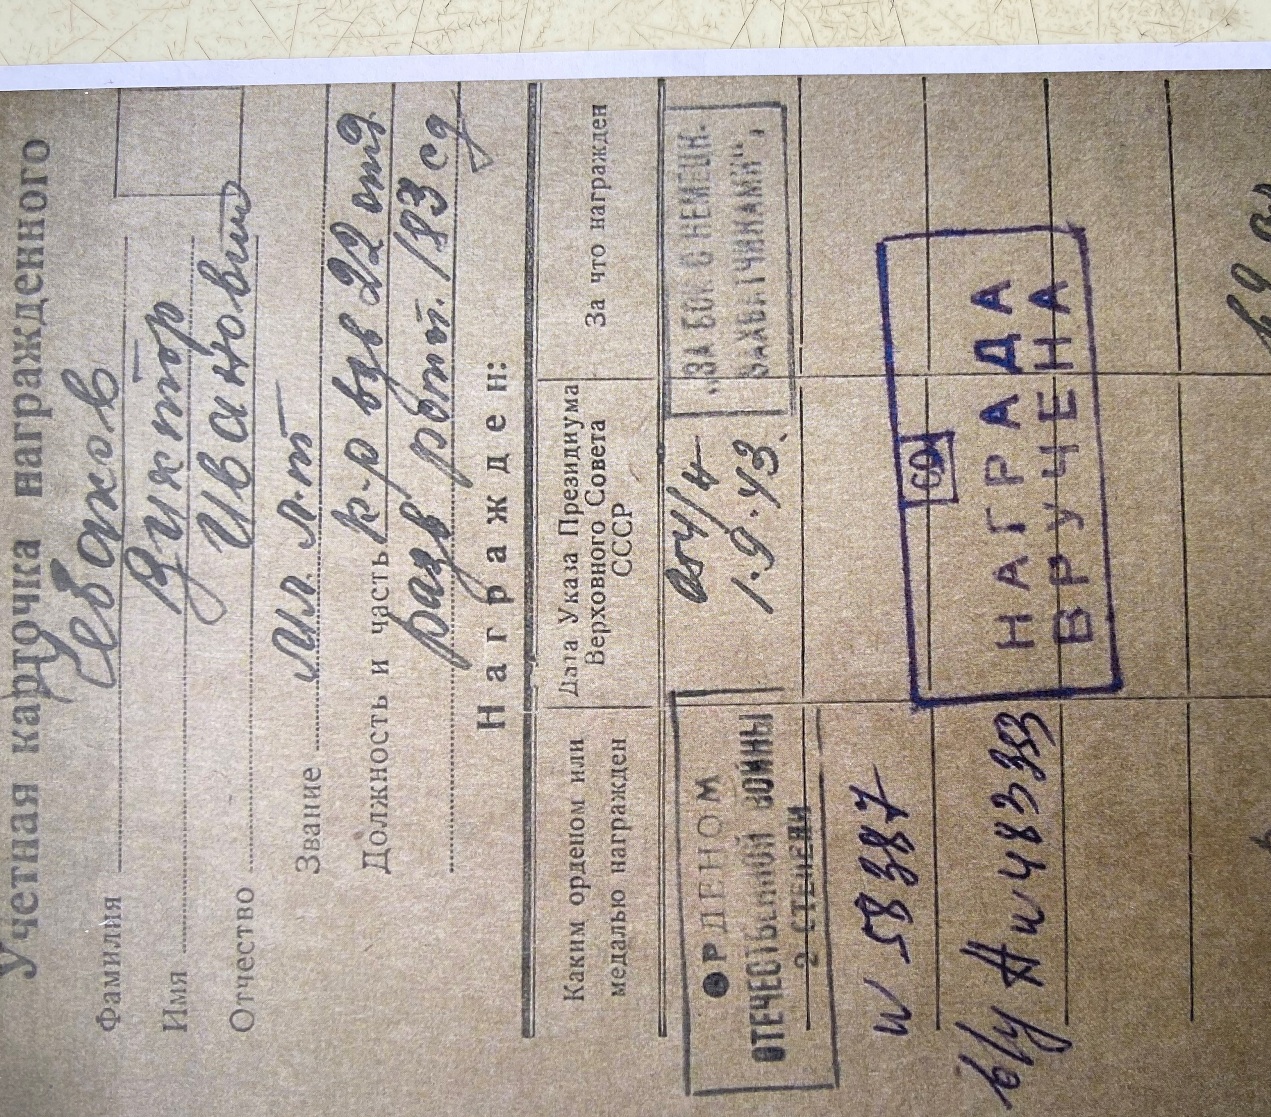 Учетная карточка награжденного
Фамилия Чебаков
Имя Виктор
Отчество Иванович
Звание мл. л-т
Должность и часть к-р взв 22 отд
разв рот. 183 сд
Награжден:
Каким орденом или медалью награжден
Дата Указа Президиума Верховного Совета СССР
За что награжден
ОРДЕНОМ
ОТЕЧЕСТВЕННОЙ ВОЙНЫ
2 СТЕПЕНИ
054/н
1.9.43.
„ЗА БОИ С НЕМЕЦК.
ЗАХВАТЧИКАМИ",
N 58387
в/у А N 483353
НАГРАДА
ВРУЧЕНА